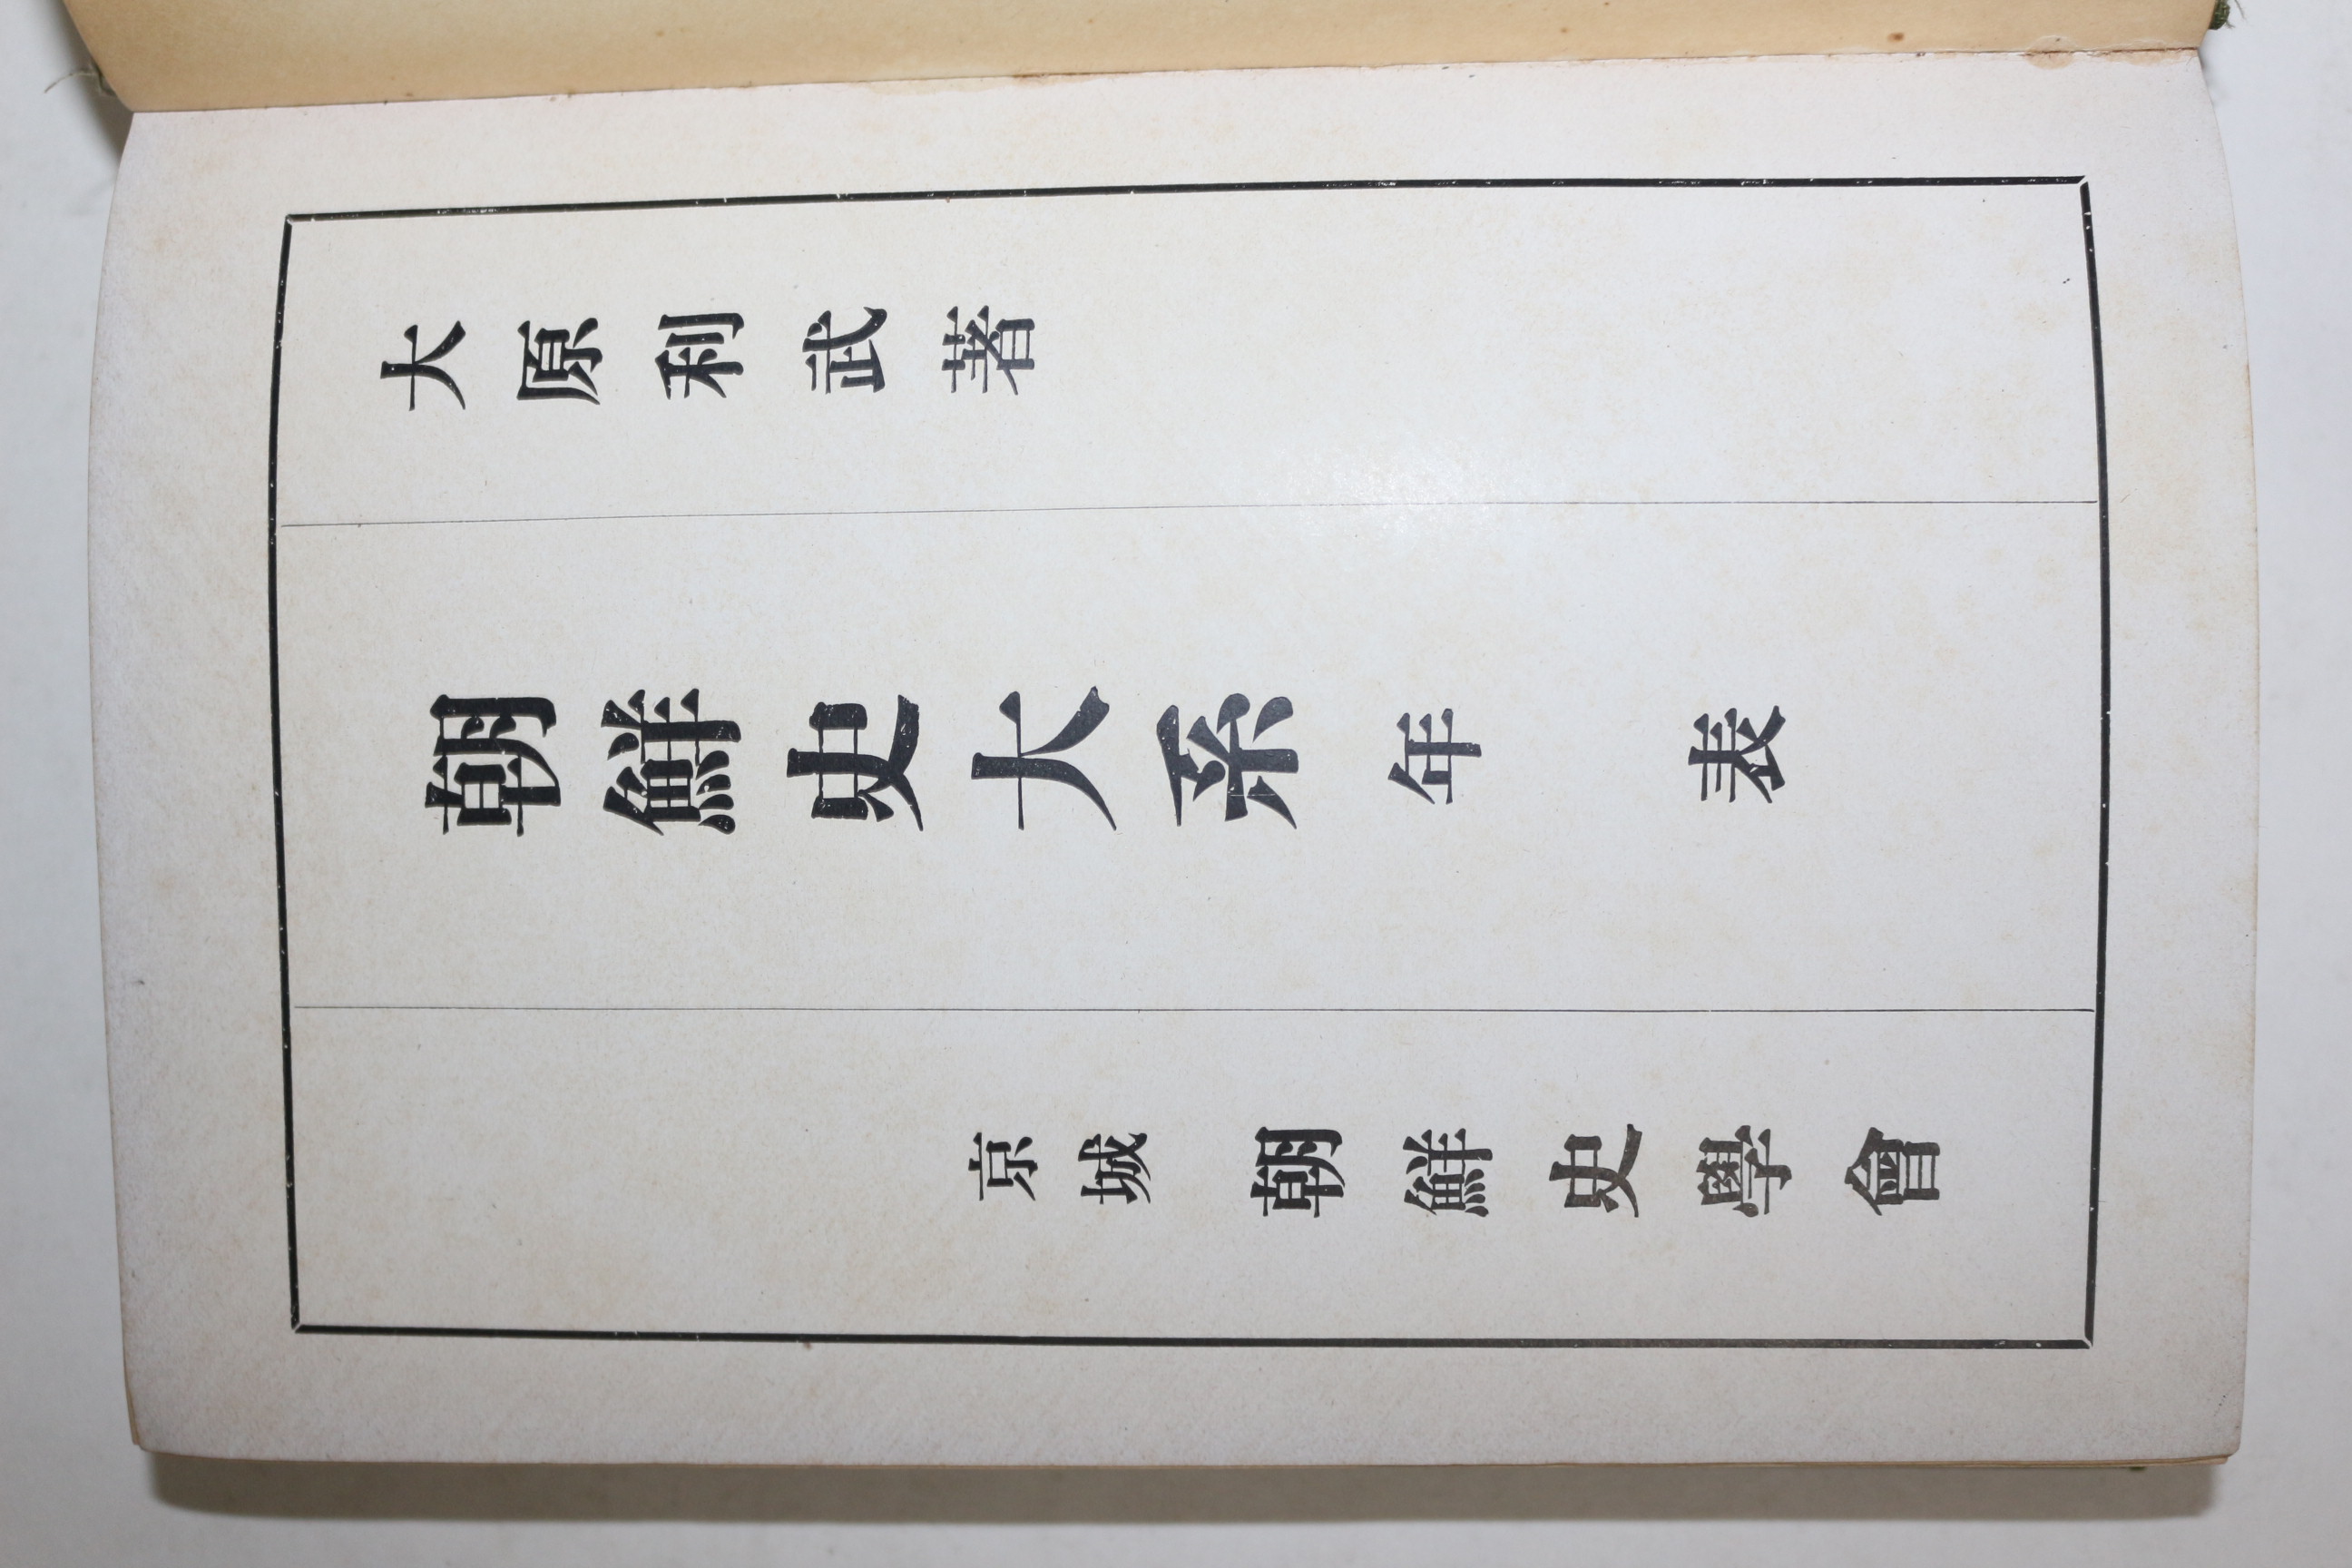 大原利武著
朝鮮史大系年表
京城 朝鮮史學會